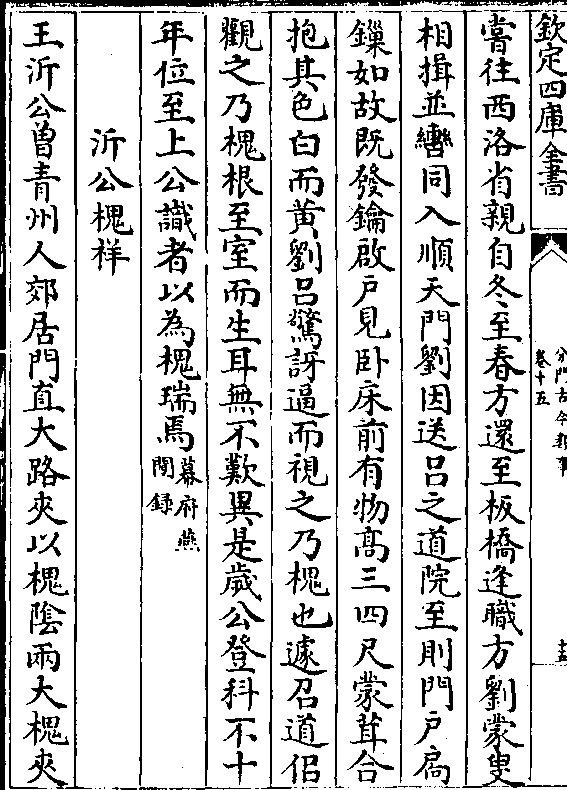 欽定四庫全書
分門古今類事
卷十五
嘗往西洛省親自冬至春方還至板橋逢職方劉蒙叟
相揖並轡同入順天門劉因送吕之道院至則門戶扃
鏁如故既發鑰啟戶見卧床前有物髙三四尺蒙茸合
抱其色白而黄劉吕驚訝逼而視之乃槐也遽召道侣
觀之乃槐根至室而生耳無不歎異是歲公登科不十
年位至上公識者以為槐瑞焉幕府燕
閒録
沂公槐祥
王沂公曽青州人郊居門直大路夾以槐隂兩大槐夾